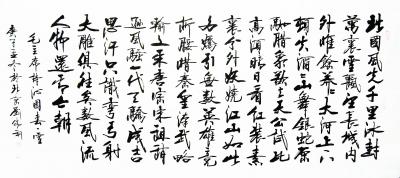 北國風光千里冰封
萬里雪飄望長城內
外唯餘莽莽大河上下
頓失滔滔山舞銀蛇原
馳臘象欲與天公試比
高須晴日看紅裝素
裹分外妖嬈江山如此
多嬌引無數英雄競
折腰惜秦皇漢武略
輸文采唐宗宋祖稍
遜風騷一代天驕成吉
思汗只識彎弓射
大雕俱往矣數風流
人物還看今朝
毛主席詩沁園春雪